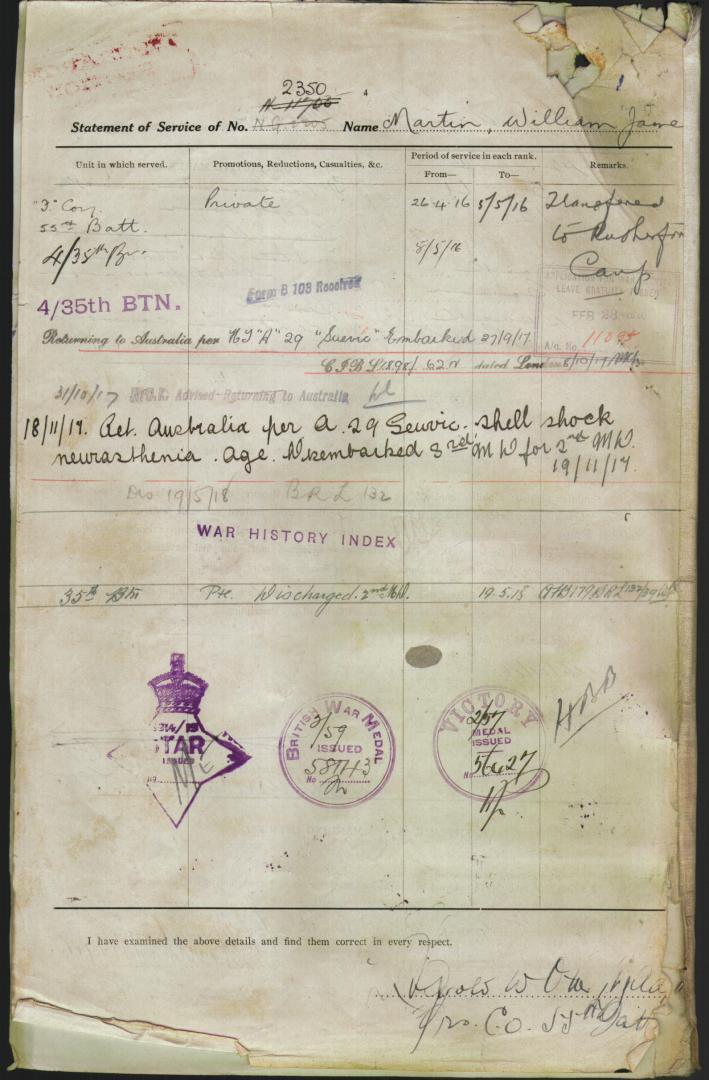 2350
Statement of Service of No. Name Martin, William Jame
Unit in which served. Promotions, Reductions, Casualties, &c. Period of service in each rank. Remarks.
From— To—
Coy. Private 26.4.16 5/5/16 Transferred
55th Batt. to Rutherford
4/35th Bn. 8/5/16 Camp
4/35th BTN. Form B 103 Received
LEAVE GRATUITY
FEB 28
A/c. No. 11095
Returning to Australia per HT "A" 29 "Suevic" Embarked 27/9/17
dated London 8/10/17
31/10/17 Advised Returning to Australia
18/11/17. Ret. Australia per A. 29 Seuvic. shell shock
neurasthenia. age. Disembarked 3rd MD for 2nd MD.
19/11/17.
Dis 19/5/18 B.R.L 132
WAR HISTORY INDEX
35th Bn Pte. Discharged. 2nd M.D. 19.5.18
1914/15
STAR
ISSUED
No
BRITISH WAR MEDAL
3/59
ISSUED
No 58743
VICTORY
MEDAL
ISSUED
No 56627
I have examined the above details and find them correct in every respect.
C.O. 55th Batt